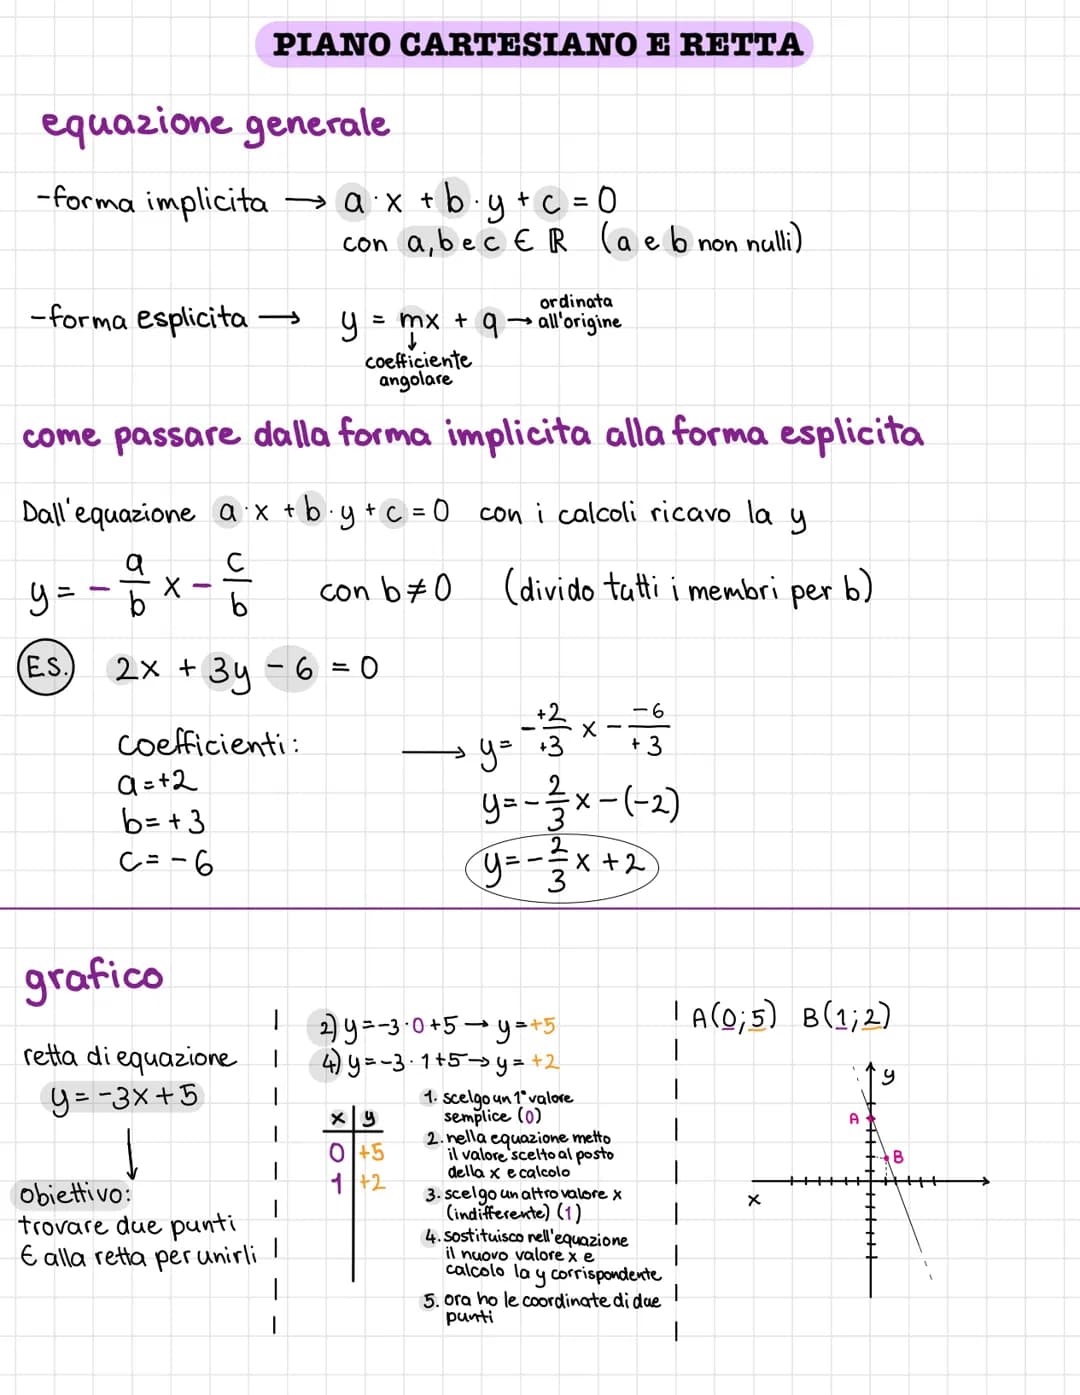 PIANO CARTESIANO E RETTA
equazione generale
-forma implicita → a·x + b·y + c = 0
con a,b e c ∈ ℝ (a e b non nulli)
-forma esplicita → y = mx + q → ordinata all'origine
↓
coefficiente
angolare
come passare dalla forma implicita alla forma esplicita
Dall'equazione a·x + b·y + c = 0 con i calcoli ricavo la y
y = - a/b x - c/b con b≠0 (divido tutti i membri per b)
ES. 2x + 3y - 6 = 0
coefficienti:
a=+2
b=+3
c=-6
→ y= - +2/+3 x - -6/+3
y=-2/3 x-(-2)
y=-2/3 x +2
grafico
retta di equazione
y=-3x+5
↓
obiettivo:
trovare due punti
∈ alla retta per unirli
2) y=-3·0+5→ y=+5
4) y=-3·1+5→ y=+2
x | y
0 | +5
1 | +2
1. scelgo un 1° valore
semplice (0)
2. nella equazione metto
il valore scelto al posto
della x e calcolo
3. scelgo un altro valore x
(indifferente) (1)
4. sostituisco nell'equazione
il nuovo valore x e
calcolo la y corrispondente
5. ora ho le coordinate di due
punti
A(0;5) B(1;2)
y
A
B
x